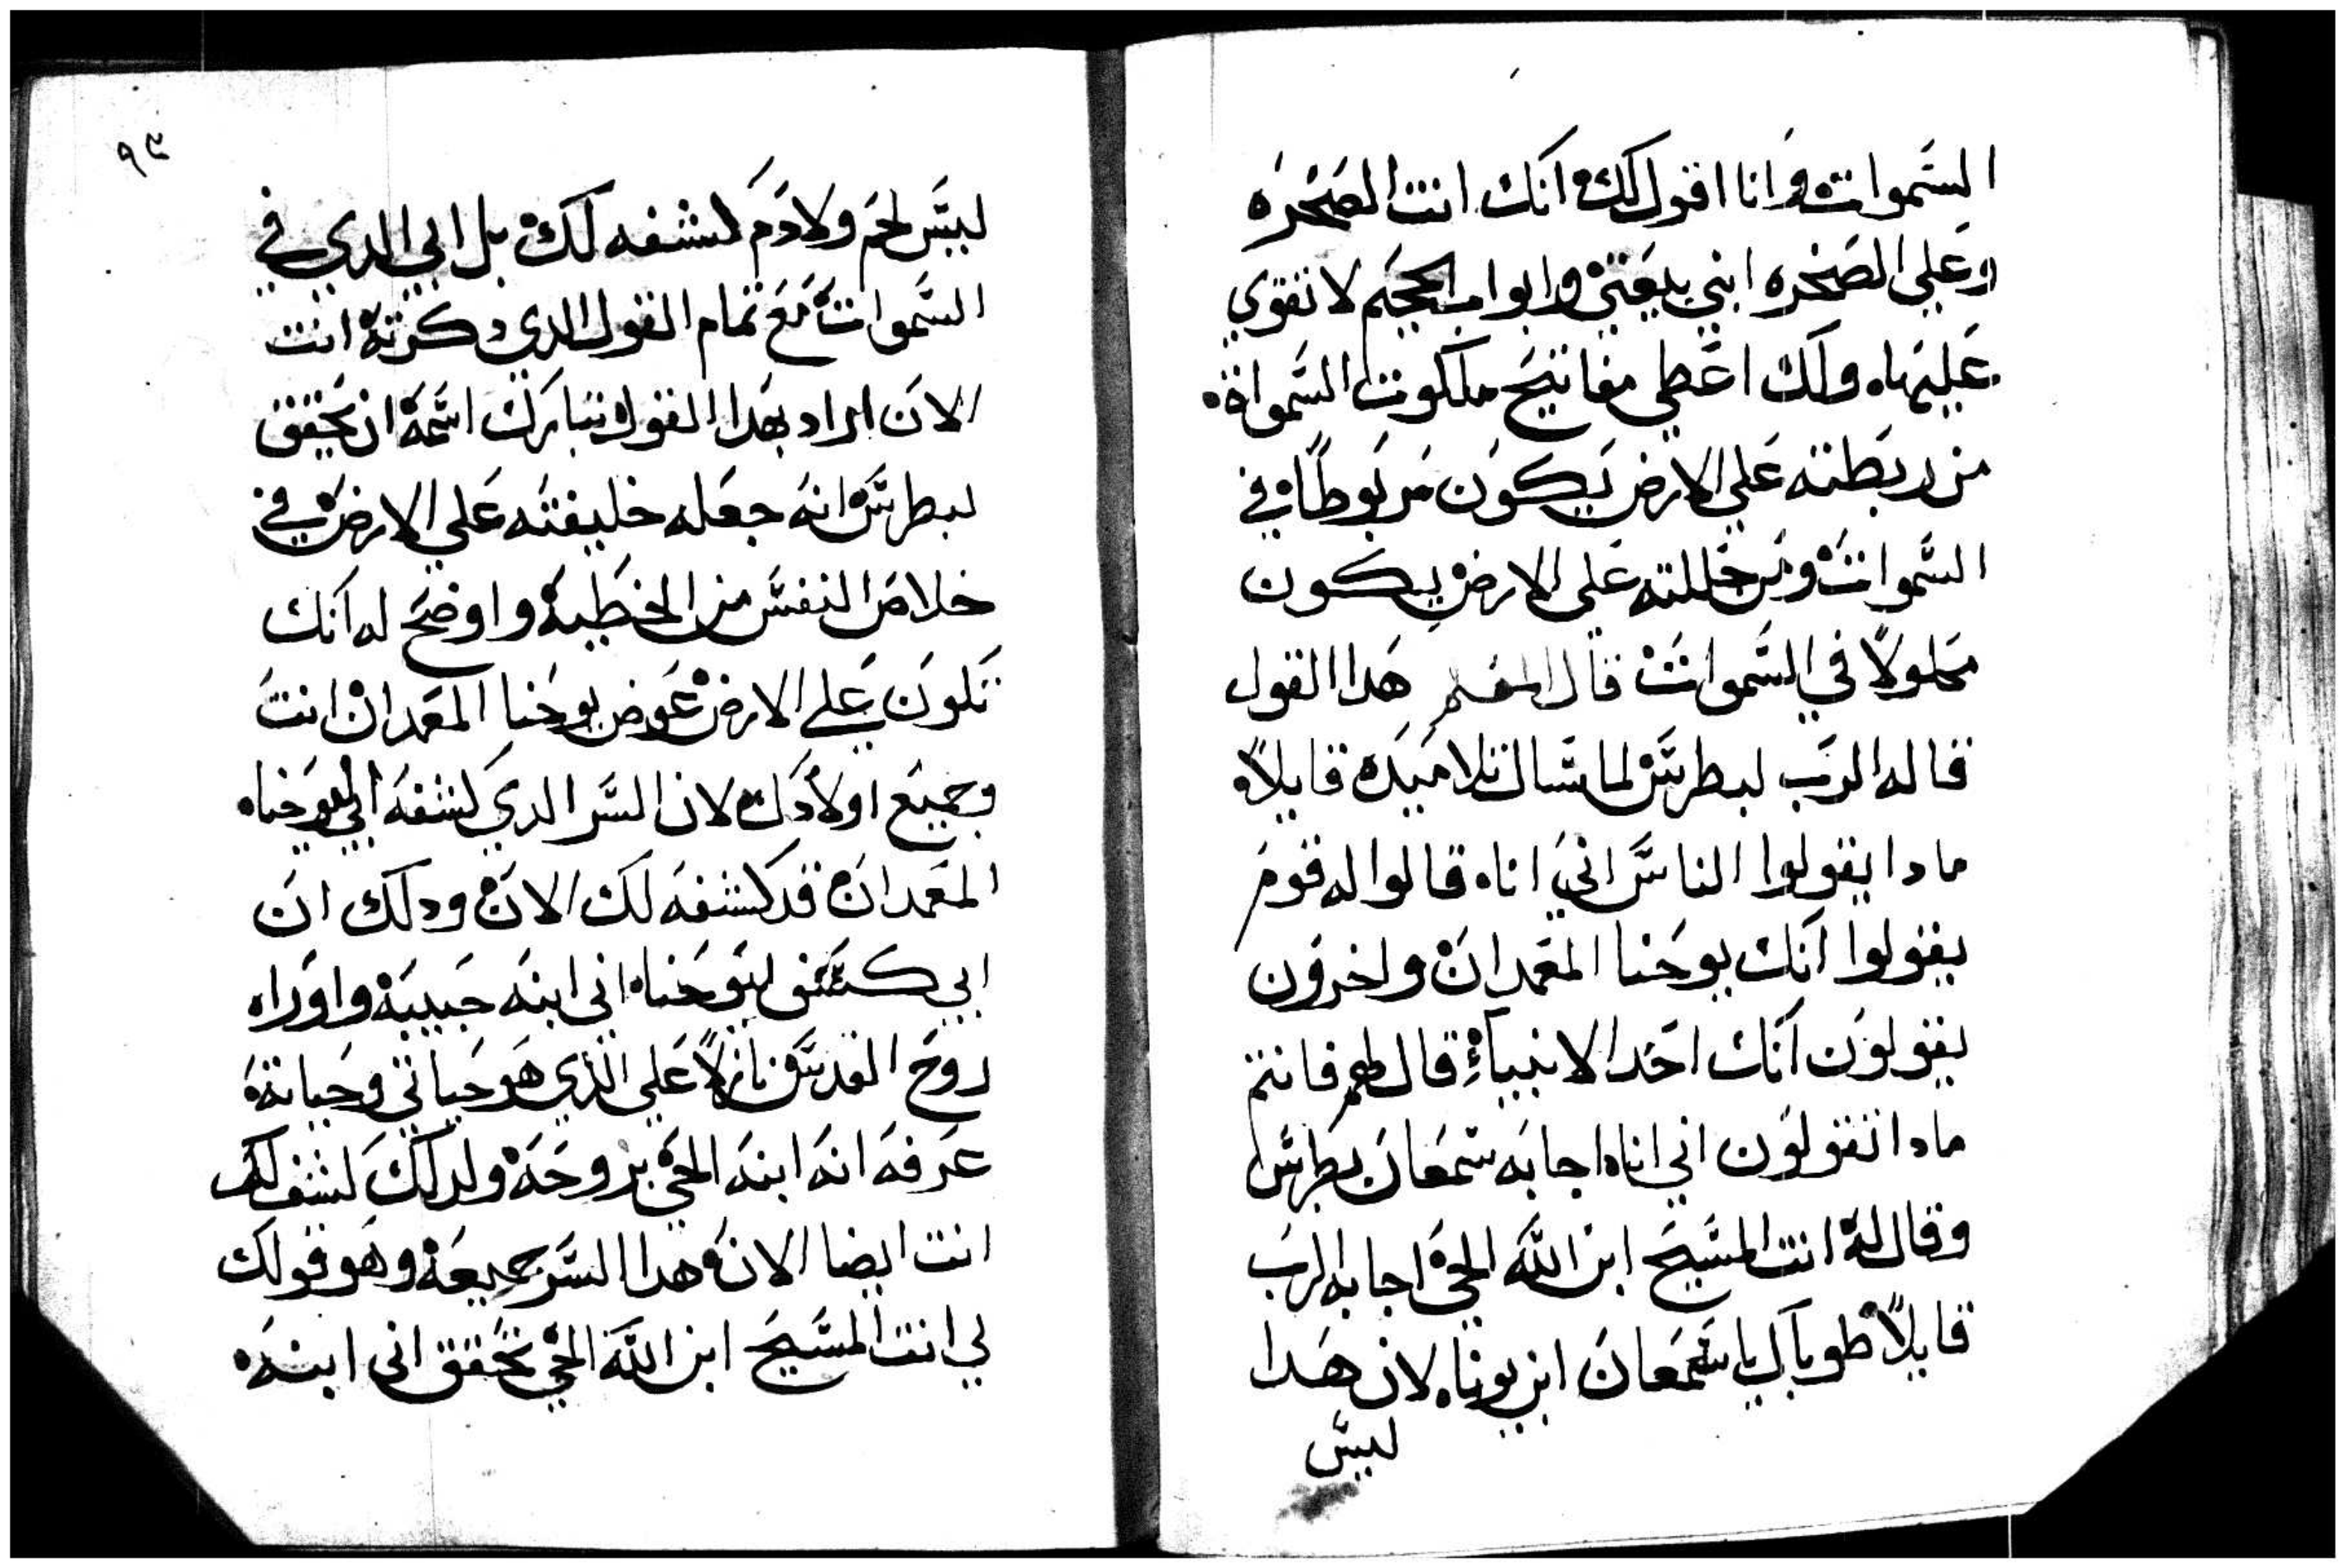 السموات وانا اقول لك انك انت الصخره
وعلي الصخره ابني بيعتي وابواب الجحيم لا تقوي
عليها، ولك اعطي مفاتيح ملكوت السمواة.
من ربطته علي الارض يكون مربوطاً في
السموات ومن حللته علي الارض يكون
محلولاً في السموات قال المفسر هدا القول
قاله الرب لبطرس لما سال تلاميده قايلاً
مادا يقولوا الناس اني انا، قالوا له قوم
يقولوا انك يوحنا المعمدان واخرون
يقولون انك احد الانبياء قال لهم فانتم
مادا تقولون اني انا، اجابه سمعان بطرس
وقال له انت المسيح ابن الله الحي اجابه الرب
قايلاً طوباك يا سمعان ابن يونا، لان هدا
ليس
٩٣
ليس لحم ولا دم كشفه لك بل ابي الدي في
السموات مع تمام القول الدي دكرته انت
الان اراد بهدا القول تبارك اسمه ان يحقق
لبطرس انه جعله خليفته علي الارض في
خلاص النفس من الخطية واوضح له انك
تكون علي الارض عوض يوحنا المعمدان انت
وجميع اولادك لان السر الدي كشفه ابي ليوحنا،
المعمدان قد كشفه لك الان ودلك ان
ابي كشف ليوحنا، اني ابنه حبيبه واوراه
روح القدس نازلاً علي الذي هو حياتي وحياته
عرفه انه ابنه الحي بروحه ولدلك كشف لك
انت ايضا الان هدا السر جميعه وهو قولك
لي انت المسيح ابن الله الحي تحقق اني ابنه.